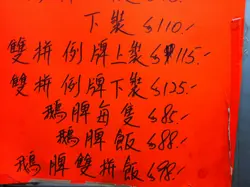 下裝 $110.-
雙拼例牌上裝 $115.-
雙拼例牌下裝 $125.-
鵝脾每隻 $85.-
鵝脾飯 $88.-
鵝脾雙拼飯 $98.-